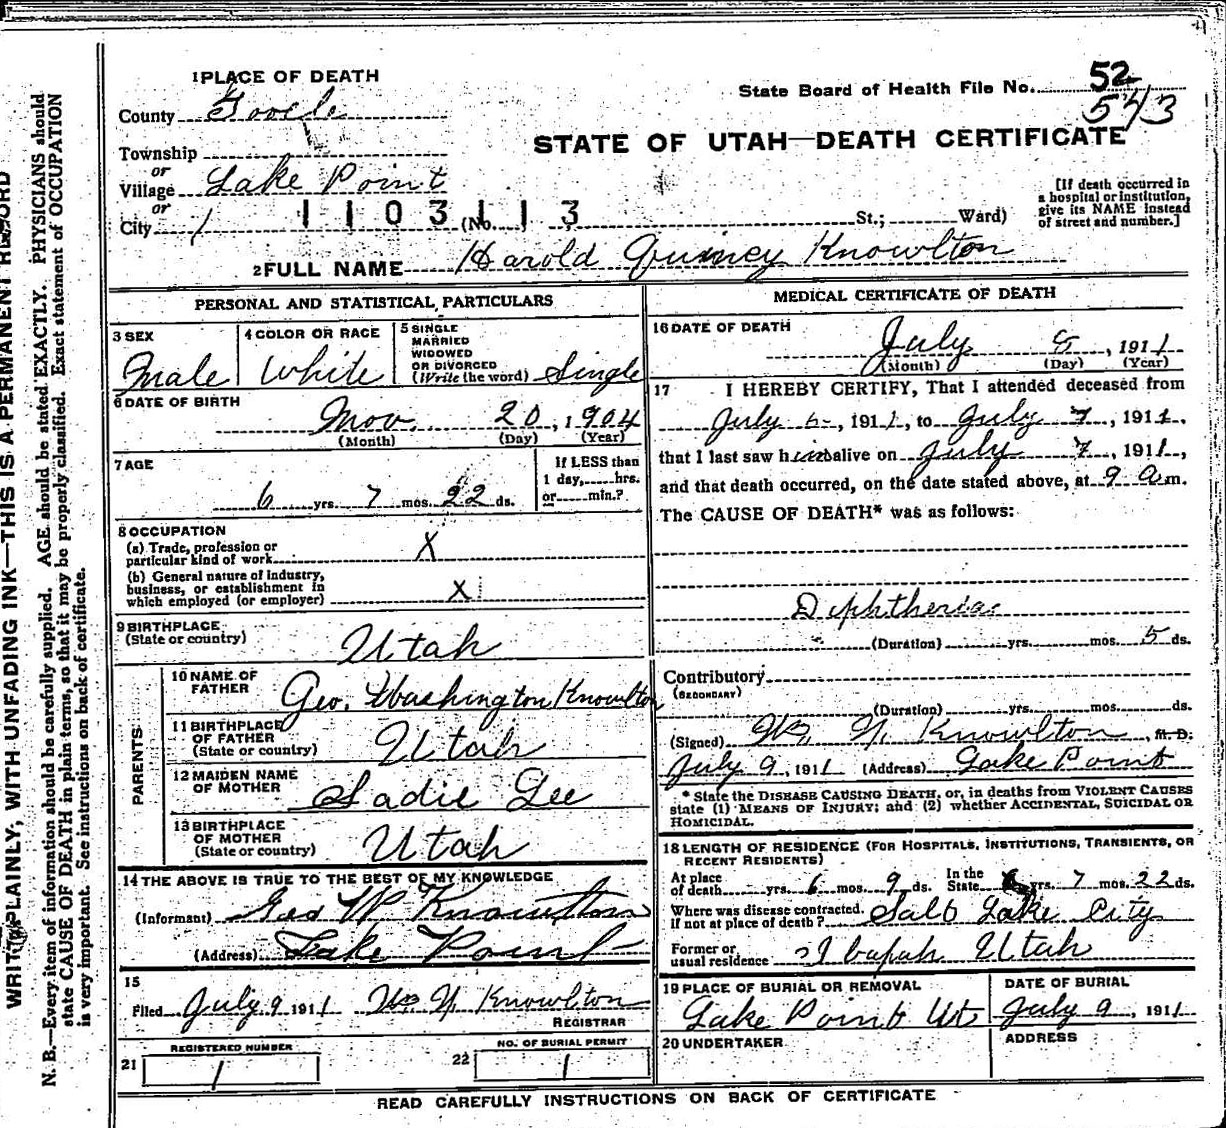 1 PLACE OF DEATH
State Board of Health File No. 52
573
County Tooele
STATE OF UTAH—DEATH CERTIFICATE
Township
or
Village Lake Point
or
City 1 1103113 (No. St.; Ward)
[If death occurred in a hospital or institution, give its NAME instead of street and number.]
2 FULL NAME Harold Quincey Knowlton
PERSONAL AND STATISTICAL PARTICULARS
3 SEX
Male
4 COLOR OR RACE
White
5 SINGLE
MARRIED
WIDOWED
OR DIVORCED
(Write the word) Single
6 DATE OF BIRTH
Nov. 20, 1904
(Month) (Day) (Year)
7 AGE
6 yrs. 7 mos. 22 ds.
If LESS than
1 day, hrs.
or min.?
8 OCCUPATION
(a) Trade, profession or
particular kind of work X
(b) General nature of industry,
business, or establishment in
which employed (or employer) X
9 BIRTHPLACE
(State or country) Utah
PARENTS
10 NAME OF
FATHER Geo. Washington Knowlton
11 BIRTHPLACE
OF FATHER
(State or country) Utah
12 MAIDEN NAME
OF MOTHER Sadie Lee
13 BIRTHPLACE
OF MOTHER
(State or country) Utah
14 THE ABOVE IS TRUE TO THE BEST OF MY KNOWLEDGE
(Informant) Geo W Knowlton
(Address) Lake Point
15
Filed July 9 1911 Knowlton
REGISTRAR
REGISTERED NUMBER
21 1
NO. OF BURIAL PERMIT
22 1
MEDICAL CERTIFICATE OF DEATH
16 DATE OF DEATH
July 8, 1911
(Month) (Day) (Year)
17 I HEREBY CERTIFY, That I attended deceased from
July 5, 1911, to July 7, 1911,
that I last saw him alive on July 7, 1911,
and that death occurred, on the date stated above, at 9 a.m.
The CAUSE OF DEATH* was as follows:
Diphtheria
(Duration) yrs. mos. 5 ds.
Contributory
(SECONDARY)
(Duration) yrs. mos. ds.
(Signed) Knowlton, M.D.
July 9, 1911 (Address) Lake Point
* State the DISEASE CAUSING DEATH, or, in deaths from VIOLENT CAUSES
state (1) MEANS OF INJURY; and (2) whether ACCIDENTAL, SUICIDAL OR
HOMICIDAL.
18 LENGTH OF RESIDENCE (FOR HOSPITALS, INSTITUTIONS, TRANSIENTS, OR
RECENT RESIDENTS)
At place
of death yrs. 6 mos. 9 ds. In the
State 6 yrs. 7 mos. 22 ds.
Where was disease contracted.
If not at place of death? Salt Lake City
Former or
usual residence Ibapah Utah
19 PLACE OF BURIAL OR REMOVAL
Lake Point Ut
DATE OF BURIAL
July 9, 1911
20 UNDERTAKER
ADDRESS
READ CAREFULLY INSTRUCTIONS ON BACK OF CERTIFICATE
WRITE PLAINLY, WITH UNFADING INK—THIS IS A PERMANENT RECORD
N. B.—Every item of information should be carefully supplied. AGE should be stated EXACTLY. PHYSICIANS should
state CAUSE OF DEATH in plain terms, so that it may be properly classified. Exact statement of OCCUPATION
is very important. See instructions on back of certificate.